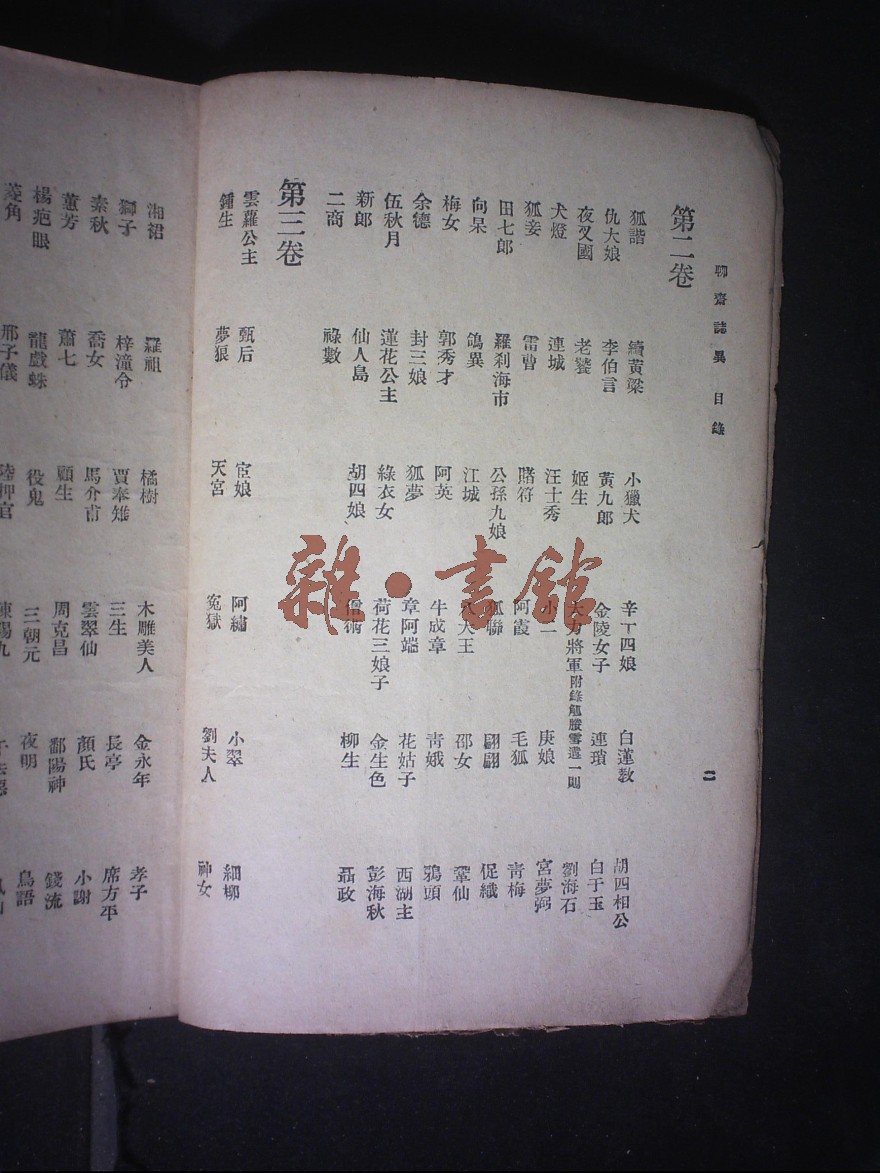 聊齋誌異 目錄
二
第二卷
狐諧 續黃粱 小獵犬 辛十四娘 白蓮教 胡四相公
仇大娘 李伯言 黃九郎 金陵女子 連瑣 白于玉
夜叉國 老饕 姬生 大力將軍附錄觚賸雪遘一則 劉海石
犬燈 連城 汪士秀 小二 庚娘 宮夢弼
狐妾 雷曹 賭符 阿霞 毛狐 青梅
田七郎 羅刹海市 公孫九娘 狐聯 翩翩 促織
向杲 鴿異 江城 八大王 邵女 鞏仙
梅女 郭秀才 阿英 牛成章 青娥 鴉頭
余德 封三娘 狐夢 章阿端 花姑子 西湖主
伍秋月 蓮花公主 綠衣女 荷花三娘子 金生色 彭海秋
新郎 仙人島 胡四娘 僧術 柳生 聶政
二商 祿數
第三卷
雲蘿公主 甄后 宦娘 阿繡 小翠 細柳
鍾生 夢狼 天宮 冤獄 劉夫人 神女
湘裙 羅祖 橘樹 木雕美人 金永年 孝子
獅子 梓潼令 賈奉雉 三生 長亭 席方平
素秋 喬女 馬介甫 雲翠仙 顏氏 小謝
蕙芳 蕭七 顧生 周克昌 鄱陽神 錢流
楊疤眼 龍戲蛛 役鬼 三朝元 夜明 鳥語
菱角 邢子儀 陸押官 陳錫九
雜·書館